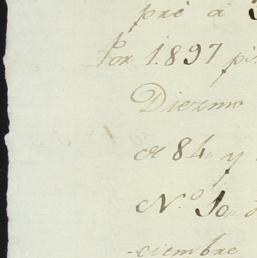 pré á
Por 1.897 p
Diezmo
á 84, y
N.º 10,
-ciembre